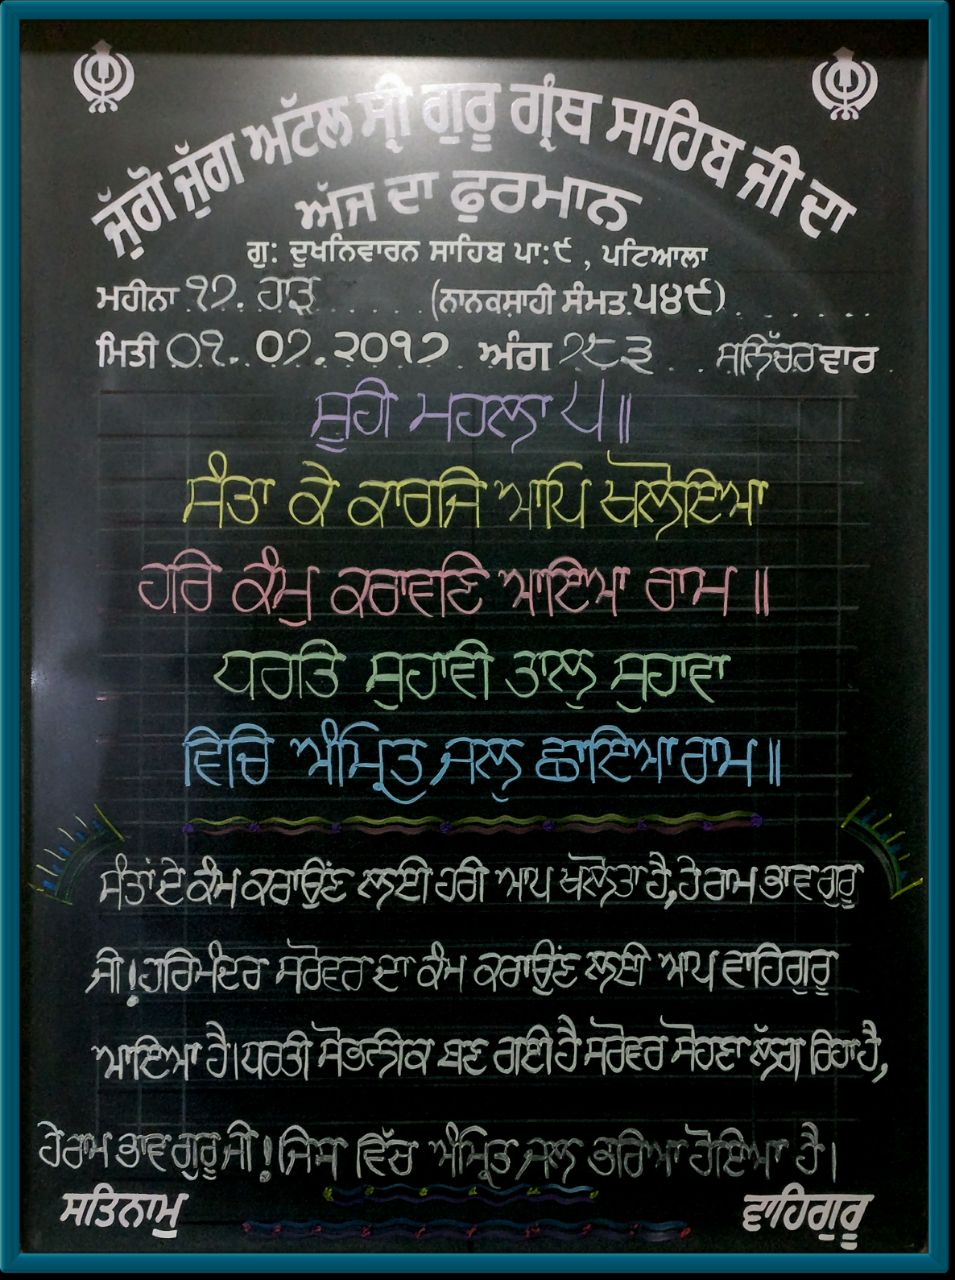 ਜੁੱਗੋ ਜੁੱਗ ਅਟੱਲ ਸ੍ਰੀ ਗੁਰੂ ਗ੍ਰੰਥ ਸਾਹਿਬ ਜੀ ਦਾ
ਅੱਜ ਦਾ ਫੁਰਮਾਨ
ਗੁ: ਦੁਖਨਿਵਾਰਨ ਸਾਹਿਬ ਪਾ:੯ , ਪਟਿਆਲਾ
ਮਹੀਨਾ ੧੭. ਹਾੜ (ਨਾਨਕਸ਼ਾਹੀ ਸੰਮਤ ੫੪੯)
ਮਿਤੀ ੦੧. ੦੭. ੨੦੧੭ ਅੰਗ ੭੮੩ ਸ਼ਨਿੱਚਰਵਾਰ
ਸੂਹੀ ਮਹਲਾ ੫॥
ਸੰਤਾ ਕੇ ਕਾਰਜਿ ਆਪਿ ਖਲੋਇਆ
ਹਰਿ ਕੰਮੁ ਕਰਾਵਣਿ ਆਇਆ ਰਾਮ॥
ਧਰਤਿ ਸੁਹਾਵੀ ਤਾਲੁ ਸੁਹਾਵਾ
ਵਿਚਿ ਅੰਮ੍ਰਿਤ ਜਲੁ ਛਾਇਆ ਰਾਮ॥
ਸੰਤਾਂ ਦੇ ਕੰਮ ਕਰਾਉਂਣ ਲਈ ਹਰੀ ਆਪ ਖਲੋਤਾ ਹੈ, ਹੇ ਰਾਮ ਭਾਵ ਗੁਰੂ
ਜੀ! ਹਰਿਮੰਦਰ ਸਰੋਵਰ ਦਾ ਕੰਮ ਕਰਾਉਂਣ ਲਈ ਆਪ ਵਾਹਿਗੁਰੂ
ਆਇਆ ਹੈ। ਧਰਤੀ ਸੋਭਨੀਕ ਬਣ ਗਈ ਹੈ ਸਰੋਵਰ ਸੋਹਣਾ ਲੱਗ ਰਿਹਾ ਹੈ,
ਹੇ ਰਾਮ ਭਾਵ ਗੁਰੂ ਜੀ! ਜਿਸ ਵਿੱਚ ਅੰਮ੍ਰਿਤ ਜਲ ਭਰਿਆ ਹੋਇਆ ਹੈ।
ਸਤਿਨਾਮੁ ਵਾਹਿਗੁਰੂ